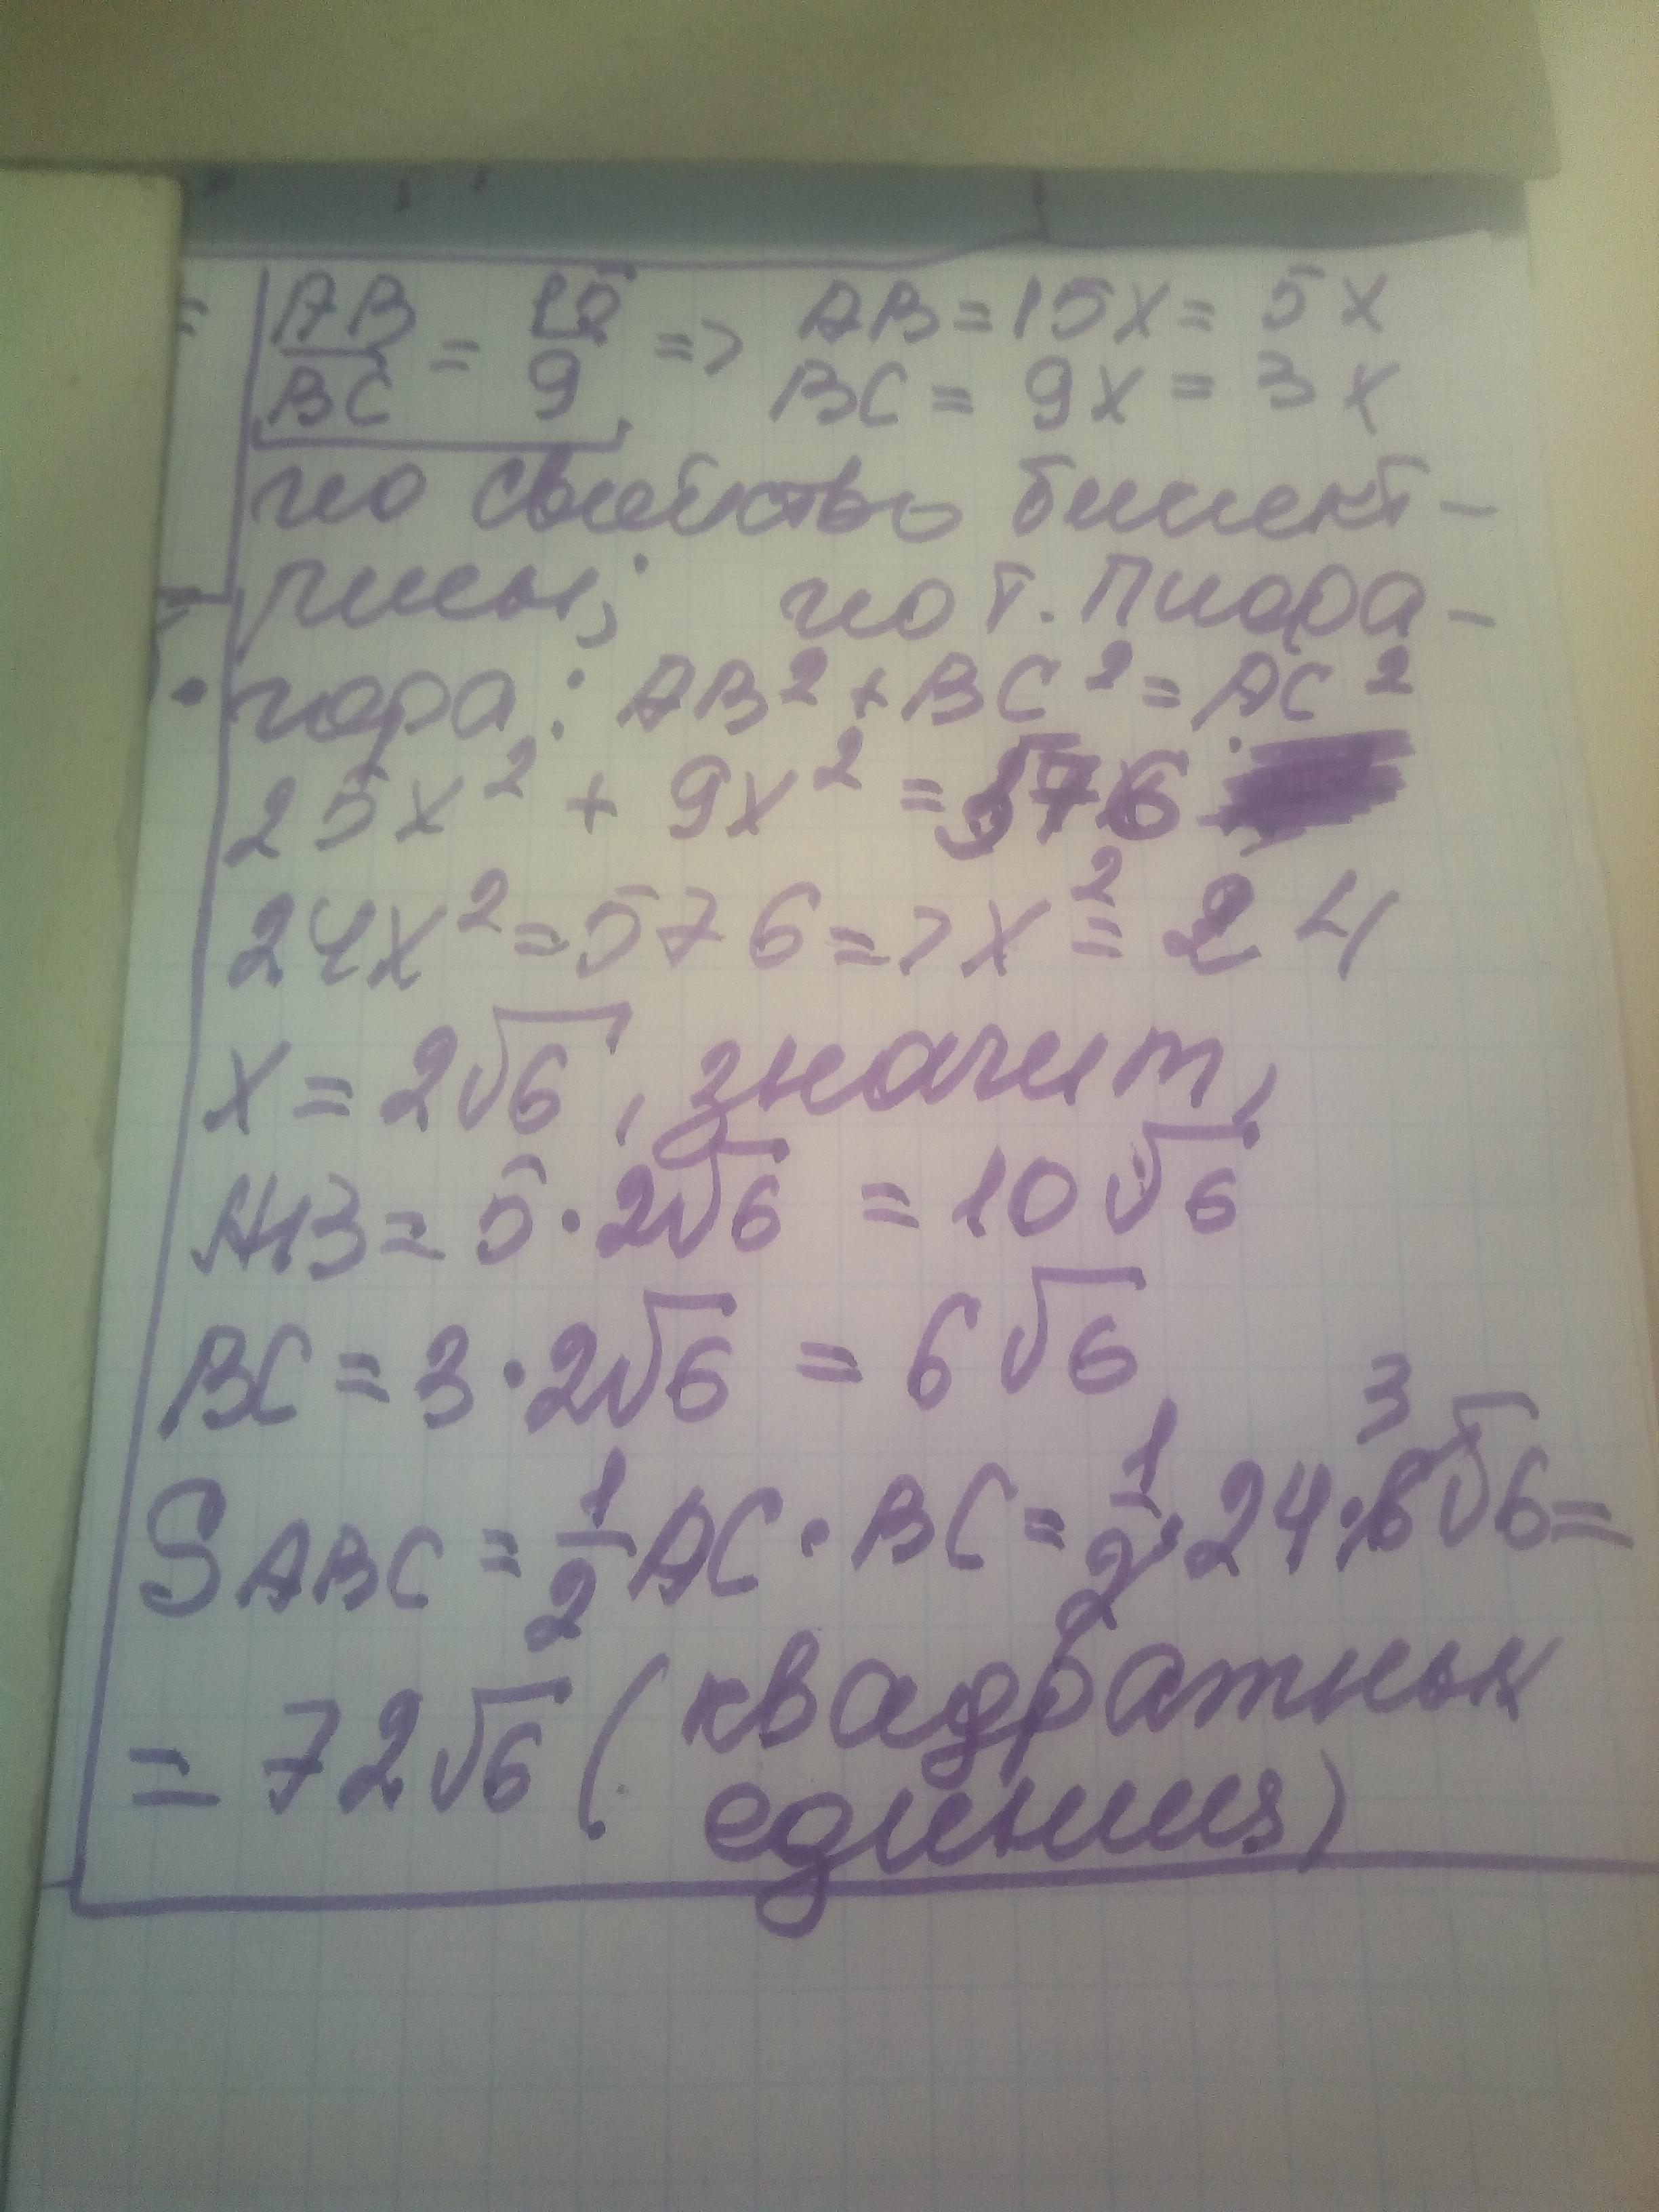 = AB/BC = 15/9 => AB = 15x = 5x
BC = 9x = 3x
по свойство биссект-
рисы; по т. Пифа-
гора: AB² + BC² = AC²
25x² + 9x² = 576
24x² = 576 => x² = 24
x = 2√6, значит,
AB = 5 · 2√6 = 10√6
BC = 3 · 2√6 = 6√6
S ABC = 1/2 AC · BC = 1/2 · 24 · 6√6 =
3
= 72√6 (квадратных
единиц)